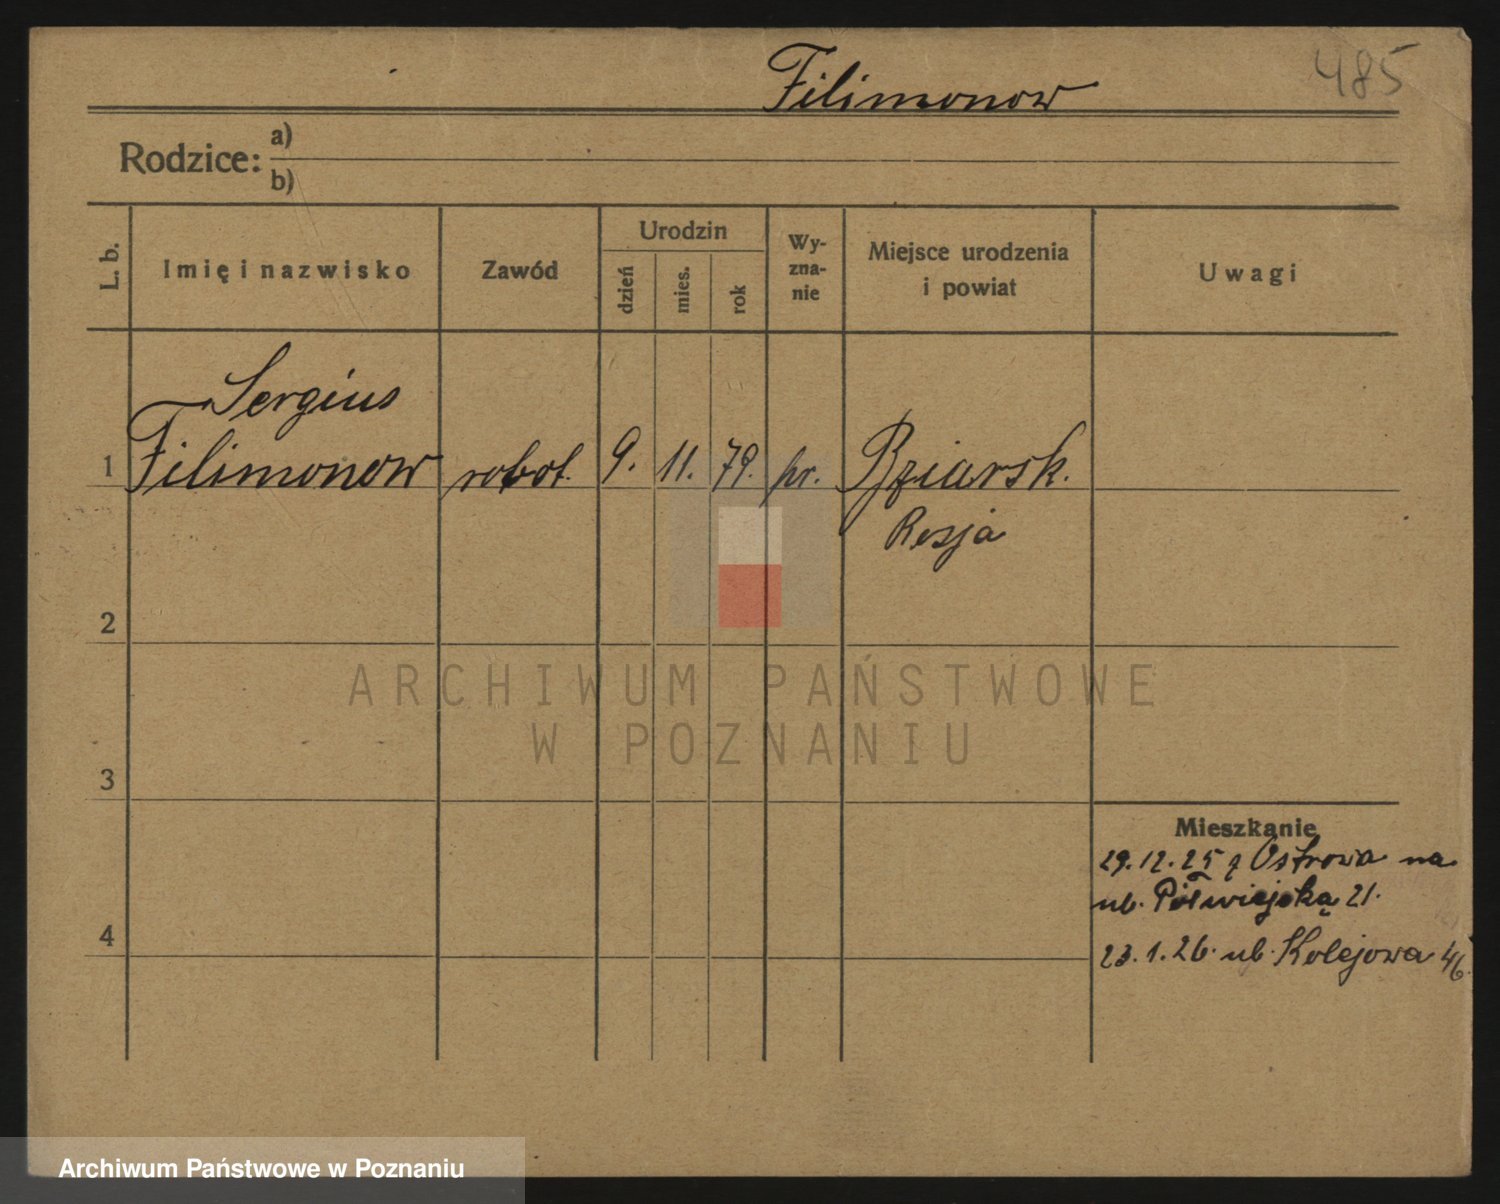 485
Filimonow
Rodzice: a)
b)
L. b.
Imię i nazwisko
Zawód
Urodzin
dzień
mies.
rok
Wy-
zna-
nie
Miejsce urodzenia
i powiat
Uwagi
Sergius
1 Filimonow robot. 9. 11. 79. pr.
Rosja
2
3
4
Mieszkanie
29.12.25 z Ostrowa na
ul. Półwiejską 21.
23.1.26. ul. Kolejowa 46.
ARCHIWUM PAŃSTWOWE
W POZNANIU
Archiwum Państwowe w Poznaniu